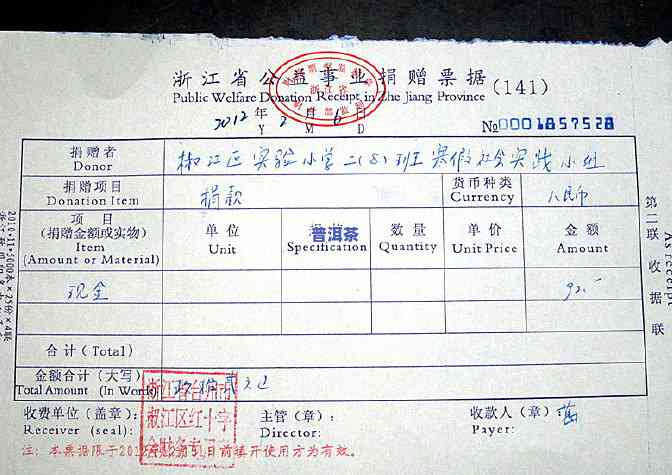 浙江省公益事业捐赠票据(141)
Public Welfare Donation Receipt in Zhe Jiang Province
2012年2月6日
Y M D
№0001857528
捐赠者 椒江区实验小学二(8)班寒假社会实践小组
Donor
捐赠项目 捐款 货币种类 人民币
Donation Item Currency
项目 单位 普洱茶 数量 单价 金额
(捐赠金额或实物) Unit Specification Quantity Unit Price Amount
Item
(Amount or Material)
现金 92.-
合计(Total)
金额合计(大写) 玖拾贰元正
Total Amount (In Words)
收费单位(盖章): 主管(章): 收款人(章)
Receiver (seal): Director: Payer:
椒江区红十字
注:本票据限于2012年12月31日前填开使用方为有效。
第二联收据联
As receipt
2010·11·5000本×25份×4联